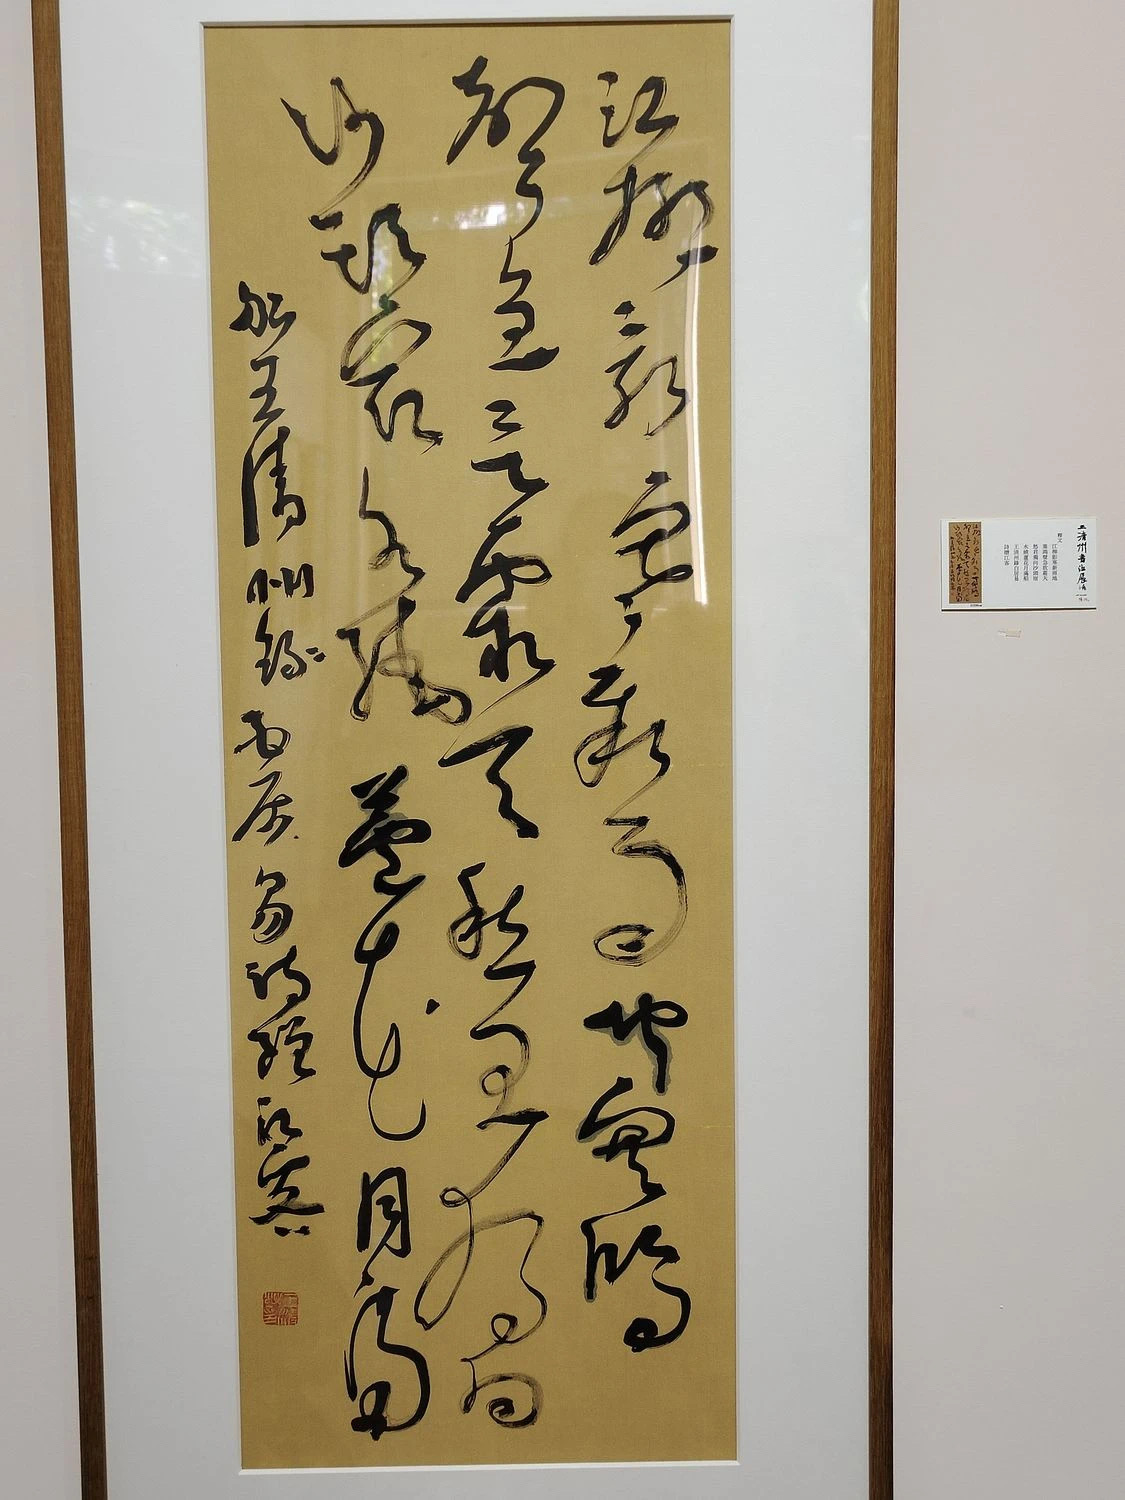 江柳影寒新雨地塞鴻
聲急欲霜天愁君獨向
沙頭宿水繞蘆花月滿
船王清州錄白居易詩贈江客
王清州書法展
釋文
江柳影寒新雨地
塞鴻聲急欲霜天
愁君獨向沙頭宿
水繞蘆花月滿船
王清州錄白居易
詩贈江客